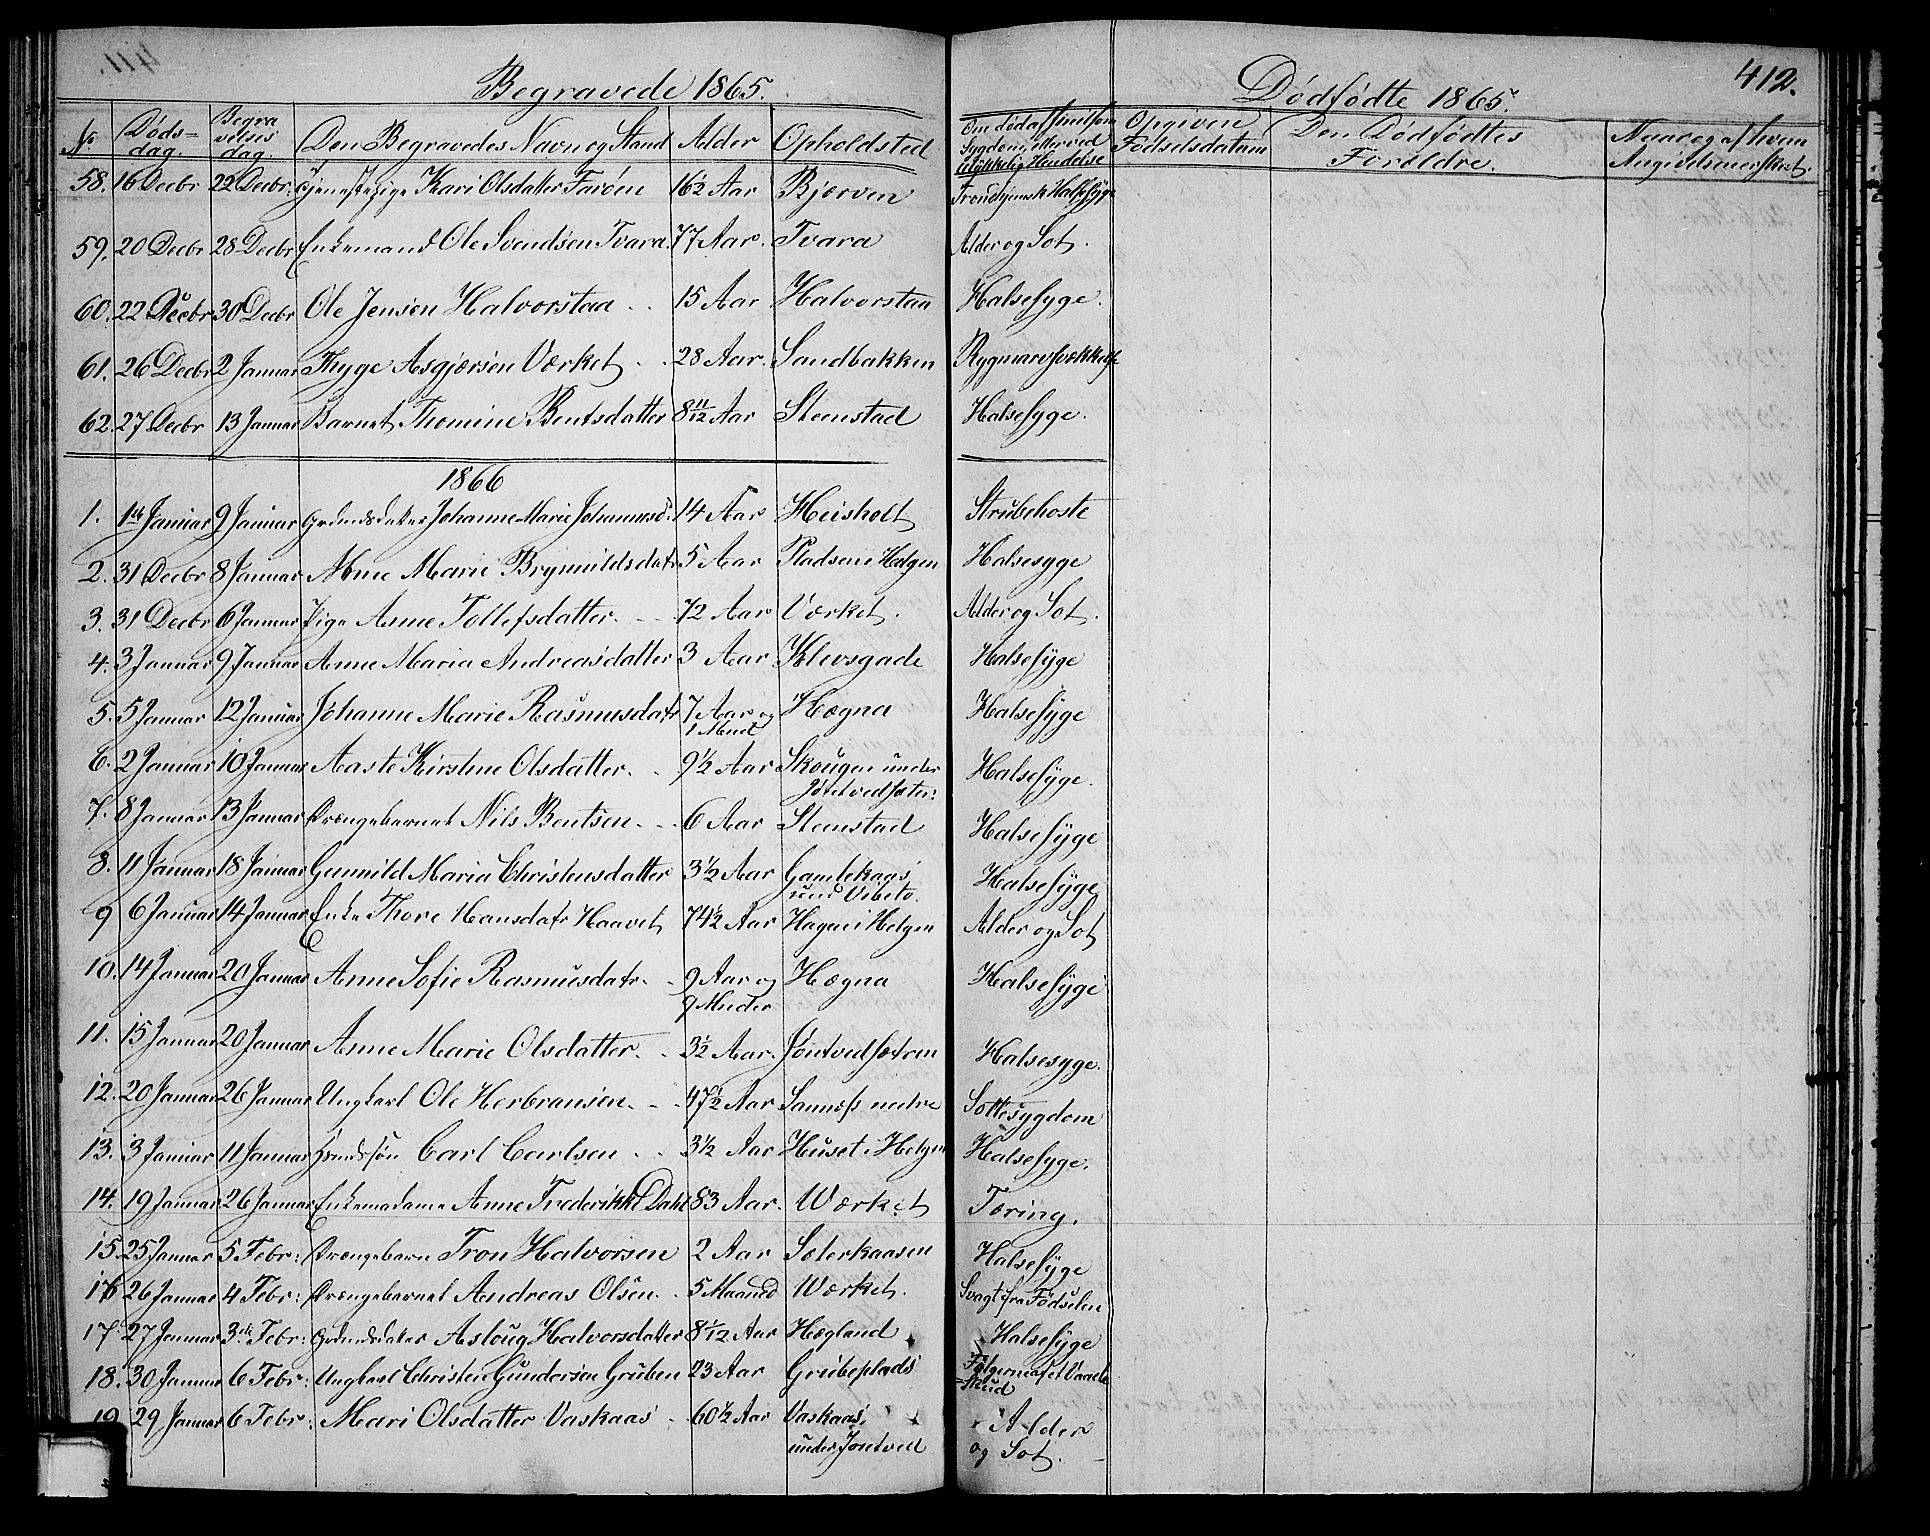 Begravede 1865.
Dødfødte 1865.
412.
No Døds-dag. Begravelses dag. Den Begravedes Navn og Stand Alder Opholdsted
Opgiven Fødselsdatum Den Dødfødtes Forældre.
58. 16 Decbr 22 Decbr. Tjenestepige Kari Olsdatter Farøen 16½ Aar Bjerven Trondhjemsk Halssyge
59. 20 Decbr 28 Decbr Enkemand Ole Svendsen Tvara 77 Aar. Tvara Alder og Sot.
60. 22 Decbr 30 Decbr Ole Jensen Halvorstaa 15 Aar Halvorstaa Halsesyge.
61. 26 Decbr 2 Januar Thyge Asgjersen Værket 28 Aar. Sandbakken Rygmarvsvækkelse
62. 27 Decbr 13 Januar Barnet Thomine Bentsdatter 8 11/12 Aar Steenstad Halsesyge.
1866
1. 1ste Januar 9 Januar Grdmdsdatter Johanne Marie Johannesd. 14 Aar Heisholt Strubehoste
2. 31 Decbr 8 Januar Anne Marie Brynnildsdatr 5 Aar Pladsen i Helgen Halsesyge
3. 31 Decbr 6 Januar Pige Anne Tollefsdatter 72 Aar Værket. Alder og Sot.
4. 3 Januar 9 Januar Anne Maria Andreasdatter 3 Aar Klevsgade Halsesyge
5. 5 Januar 12 Januar Johanne Marie Rasmusdatr 7 Aar og 1 Mned Hægna Halsesyge
6. 2 Januar 10 Januar Aaste Kirstine Olsdatter. 9½ Aar Skougen under Jøntvedsæter: Halsesyge.
7. 8 Januar 13 Januar Drængebarnet Nils Bentsen 6 Aar Steenstad Halsesyge
8. 11 Januar 18 Januar Gunnild Maria Christensdatter 3½ Aar Gamlekaas und Vibeto. Halsesyge
9 6 Januar 14 Januar Enke Thore Hansdatr Haavet 74½ Aar Hagen i Helgen Alder og Sot
10. 14 Januar 20 Januar Anne Sofie Rasmusdatr. 9 Aar og 9 Mneder Hægna Halsesyge
11. 15 Januar 20 Januar Anne Marie Olsdatter. 3½ Aar. Jøntvedsætren Halsesyge.
12. 20 Januar 26 Januar Ungkarl Ole Herbransen. 47½ Aar Sannæss nedre Sottesygdom
13. 3 Januar 11 Januar Grmdssøn Carl Carlsen 3½ Aar Huset i Helgen Halsesyge.
14. 19 Januar 26 Januar Enkemadame Anne Frederikke Dahl 83 Aar. Wærket Tæring.
15. 25 Januar 5 Febr: Drængebarn Tron Halvorsen 2 Aar Soterkaasen Halsesyge
16 26 Januar 4 Febr: Drængebarnet Andreas Olsen. 5 Maaned Wærket. Svagt fra Fødselen
17. 27 Januar 3de Febr: Grdmdsdatter Asloug Halvorsdatter 8 1/12 Aar Hægland Halsesyge
18. 30 Januar 6 Febr: Ungkarl Christen Gundersen Gruben 23 Aar Grubeplads Følgerne af et Vaadeskud
19 29 Januar 6 Febr: Mari Olsdatter Vaskaas 60½ Aar Vaskaas, under Jøntved Alder og Sot.